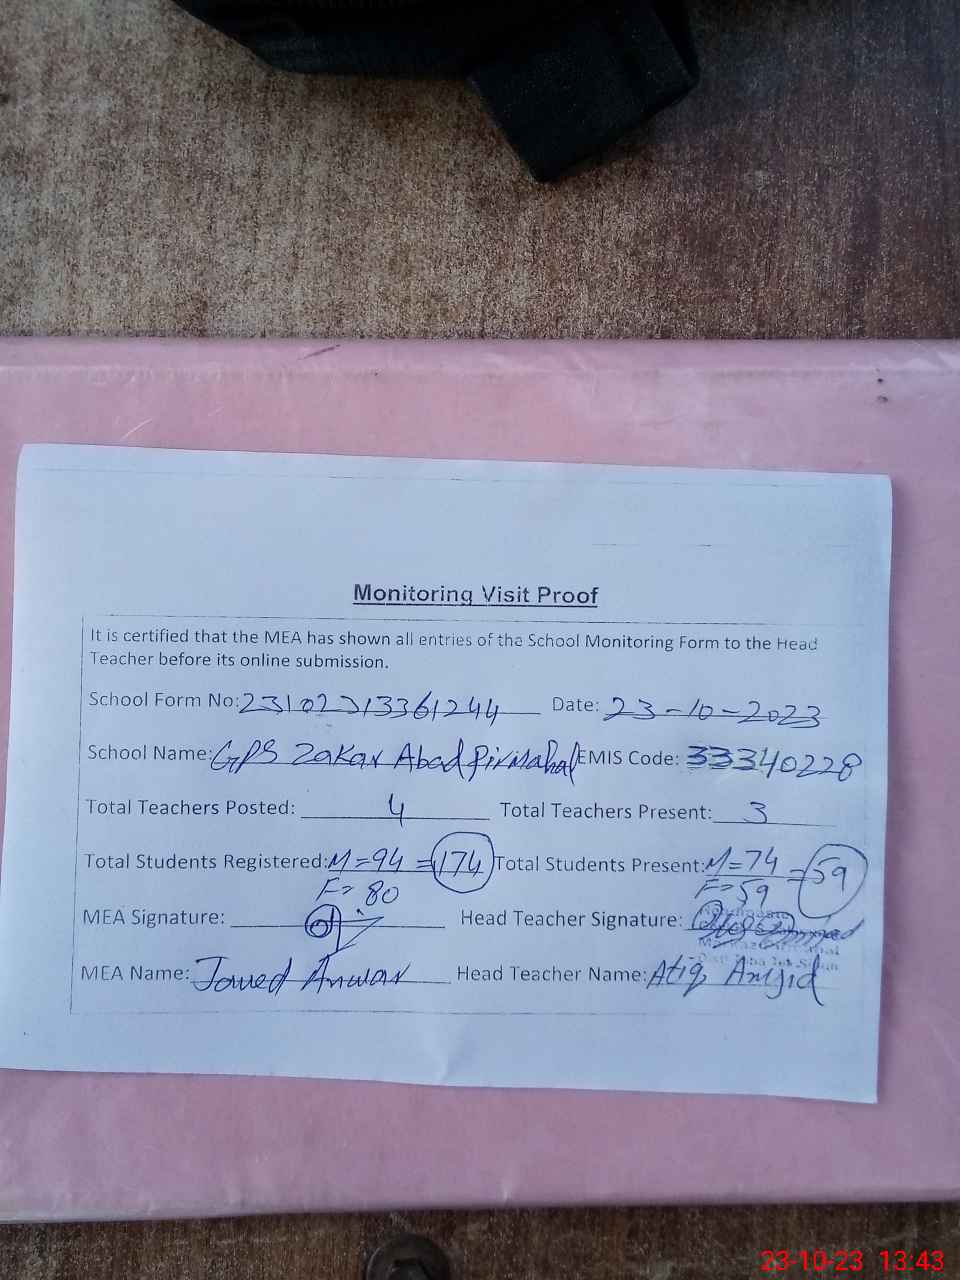 Monitoring Visit Proof
It is certified that the MEA has shown all entries of the School Monitoring Form to the Head
Teacher before its online submission.
School Form No: 23102313361244 Date: 23-10-2023
School Name: GPS Zakar Abad Pirmahal EMIS Code: 33340228
Total Teachers Posted: 4 Total Teachers Present: 3
Total Students Registered: M=94 =174 Total Students Present: M=74 =59
F=80 F=59
MEA Signature: Head Teacher Signature:
MEA Name: Javed Anwar Head Teacher Name: Atiq Amjid
23-10-23 13:43